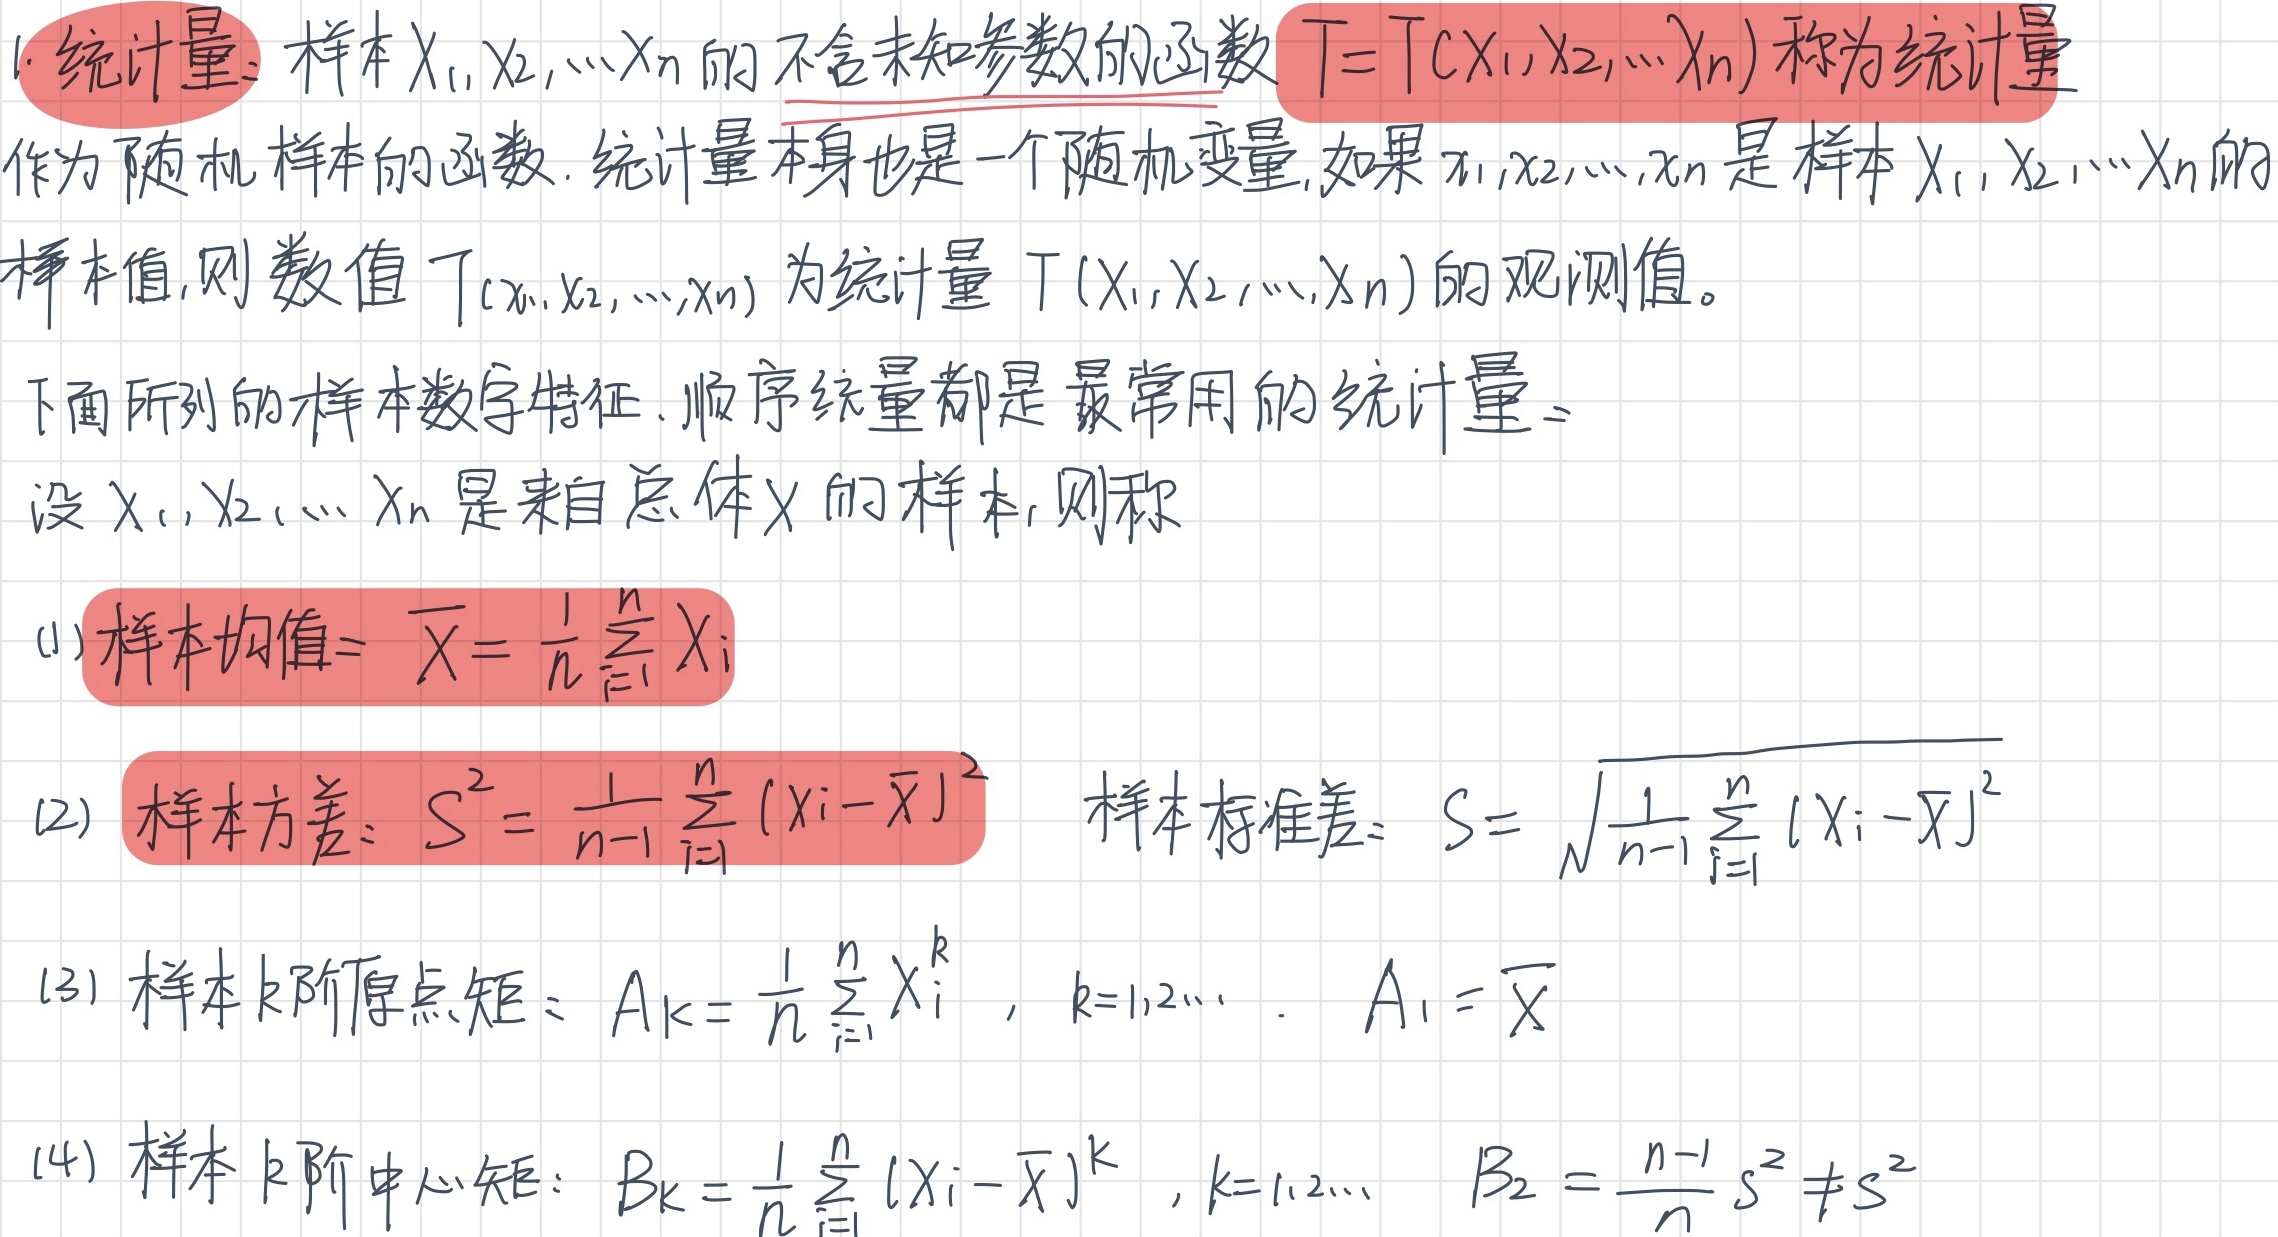 1. 统计量: 样本X₁, X₂, …Xn 的不含未知参数的函数 T=T(X₁, X₂, …Xn) 称为统计量
作为随机样本的函数. 统计量本身也是一个随机变量, 如果 x₁, x₂, …, xn 是样本 X₁, X₂, …Xn 的
样本值, 则数值 T(x₁, x₂, …, xn) 为统计量 T(X₁, X₂, …, Xn) 的观测值。
下面所列的样本数字特征、顺序统量都是最常用的统计量:
设 X₁, X₂, … Xn 是来自总体X 的样本, 则称
(1) 样本均值: X̄ = 1/n ∑_{i=1}^{n} Xi
(2) 样本方差: S² = 1/(n-1) ∑_{i=1}^{n} (Xi - X̄)² 样本标准差: S = √(1/(n-1) ∑_{i=1}^{n} (Xi - X̄)²)
(3) 样本k阶原点矩: Ak = 1/n ∑_{i=1}^{n} Xi^k , k=1,2… . A₁ = X̄
(4) 样本k阶中心矩: Bk = 1/n ∑_{i=1}^{n} (Xi - X̄)^k , k=1,2… B₂ = (n-1)/n S² ≠ S²